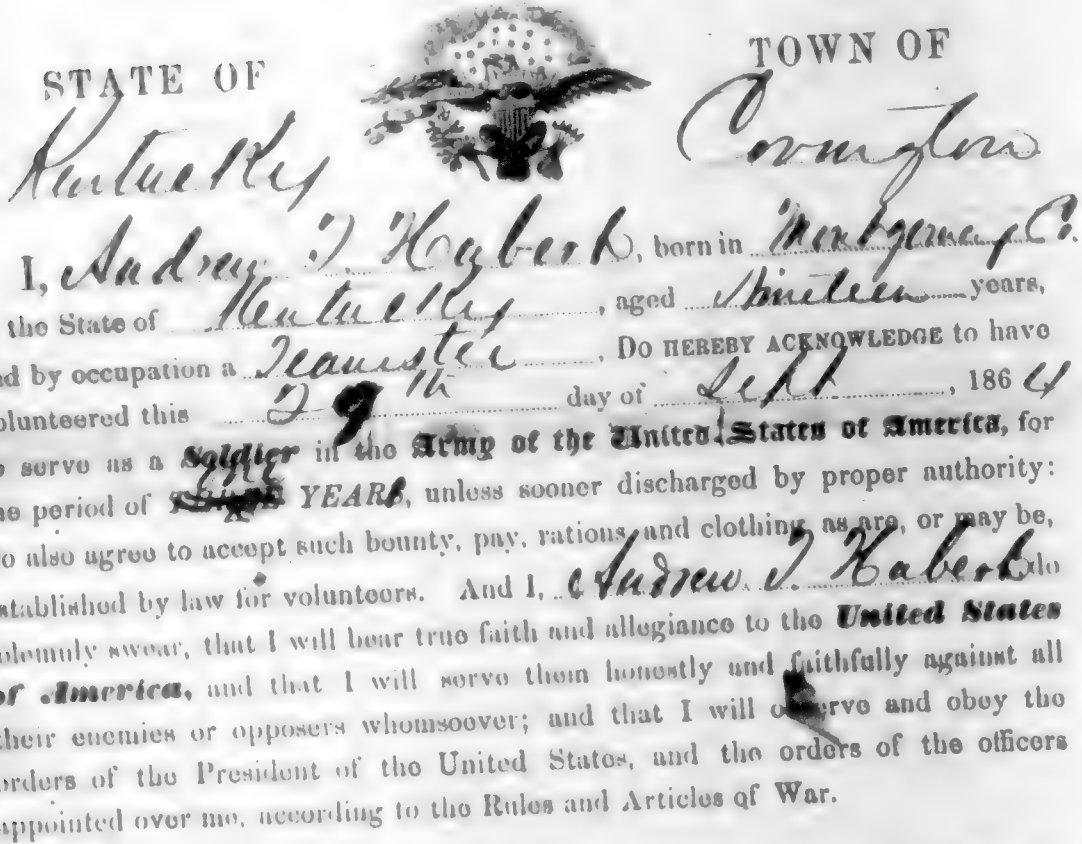 STATE OF TOWN OF
Kentucky Covington
I, Andrew T. Haberh, born in Montgomery Co.
the State of Kentucky, aged Nineteen years,
d by occupation a Teamster, Do HEREBY ACKNOWLEDGE to have
olunteered this 29th day of Sept, 1864
serve as a Soldier in the Army of the United States of America, for
e period of YEARS, unless sooner discharged by proper authority:
o also agree to accept such bounty, pay, rations and clothing as are, or may be,
stablished by law for volunteers. And I, Andrew T. Haberh do
olemnly swear, that I will bear true faith and allegiance to the United States
of America, and that I will serve them honestly and faithfully against all
their enemies or opposers whomsoever; and that I will observe and obey the
orders of the President of the United States, and the orders of the officers
appointed over me, according to the Rules and Articles of War.